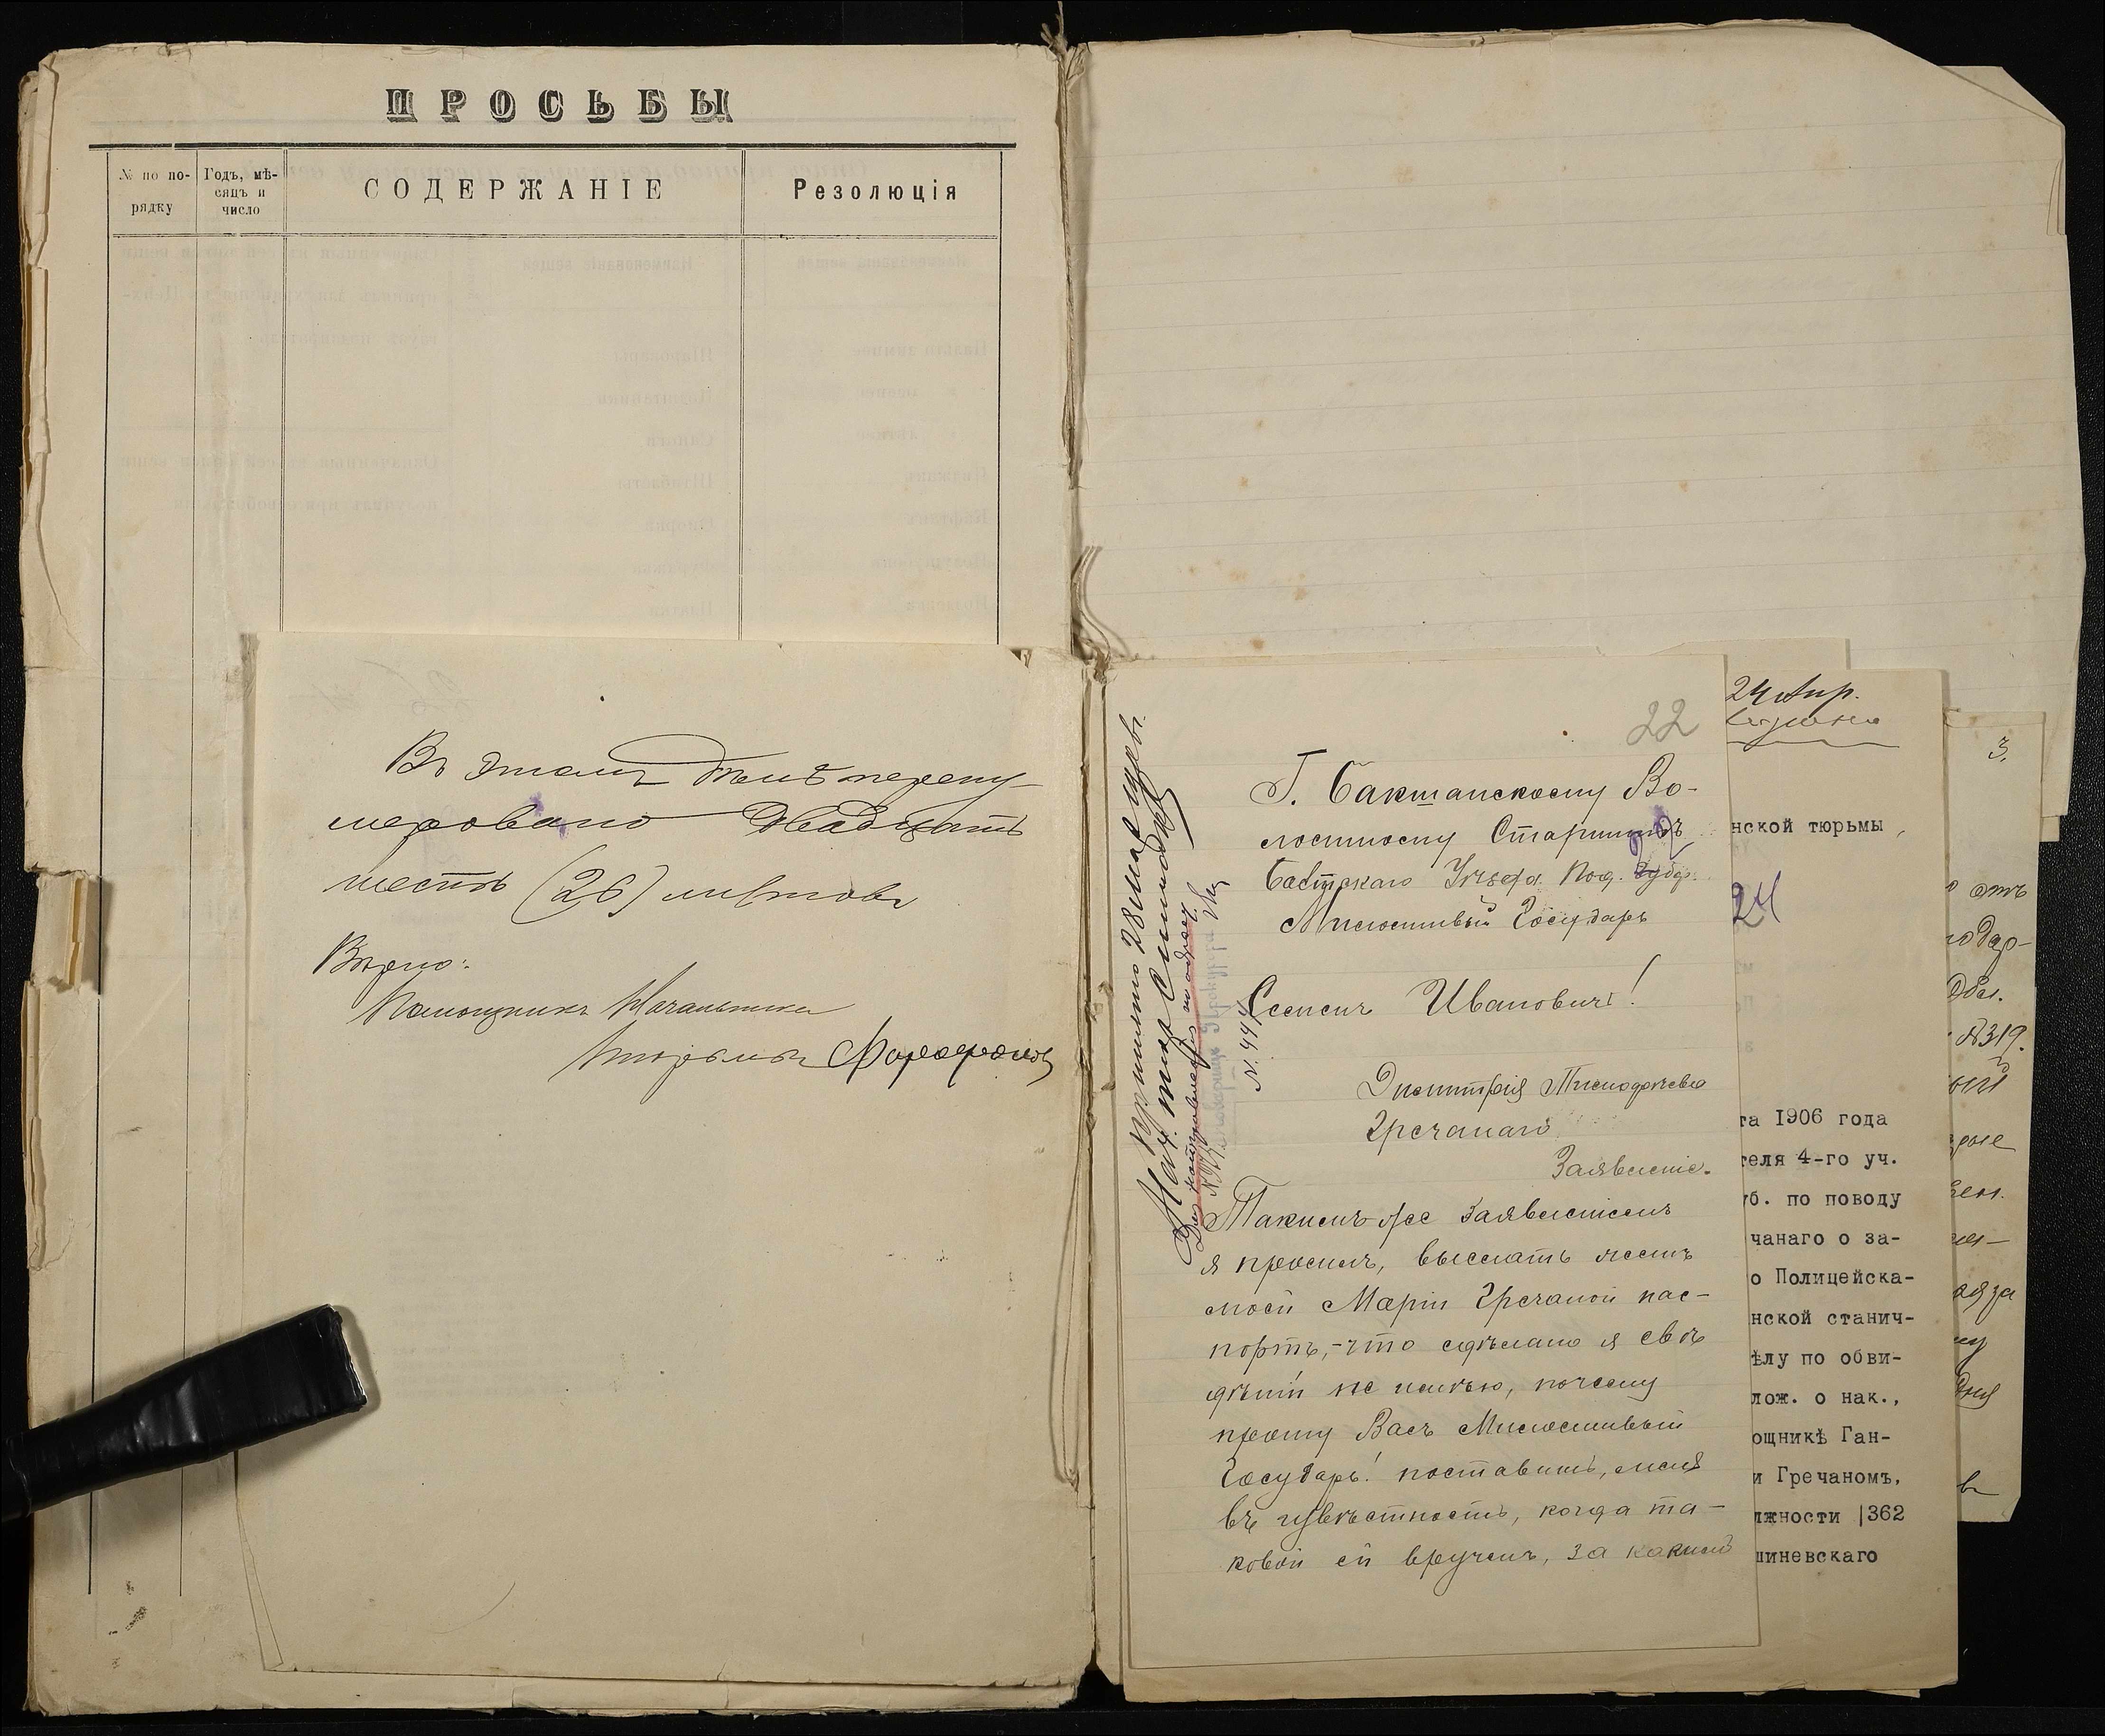 ПРОСЬБЫ
№ по по-
рядку
Годъ, мѣ-
сяцъ и
число
СОДЕРЖАНІЕ
Резолюція
Въ этомъ дѣлѣ перену-
меровано двадцать
шесть (26) листовъ
Вѣрно:
Помощникъ Начальника
тюрьмы
22
Г. Бакшанскому Во-
лостному Старшинѣ
Балтскаго Уѣзда Под. Губер.
Милостивый Государь
Семенъ Ивановичъ!
Димитрія Тимофѣева
Гречанаго
Заявленіе.
Такимъ же заявленіемъ
я просилъ, выслать женѣ
моей Маріи Гречаной пас-
портъ, - что сдѣлано я свѣ
дѣній не имѣю, почему
прошу Васъ Милостивый
Государь! поставить, меня
въ извѣстность, когда та-
ковой ей врученъ, за какимъ
N. 444
24 Апр.
нской тюрьмы
24
та 1906 года
теля 4-го уч.
уб. по поводу
чанаго о за-
о Полицейска-
нской станич-
ѣлу по обви-
лож. о нак.,
ощникѣ Ган-
и Гречаномъ,
лжности |362
шиневскаго
3.
отъ
№319.